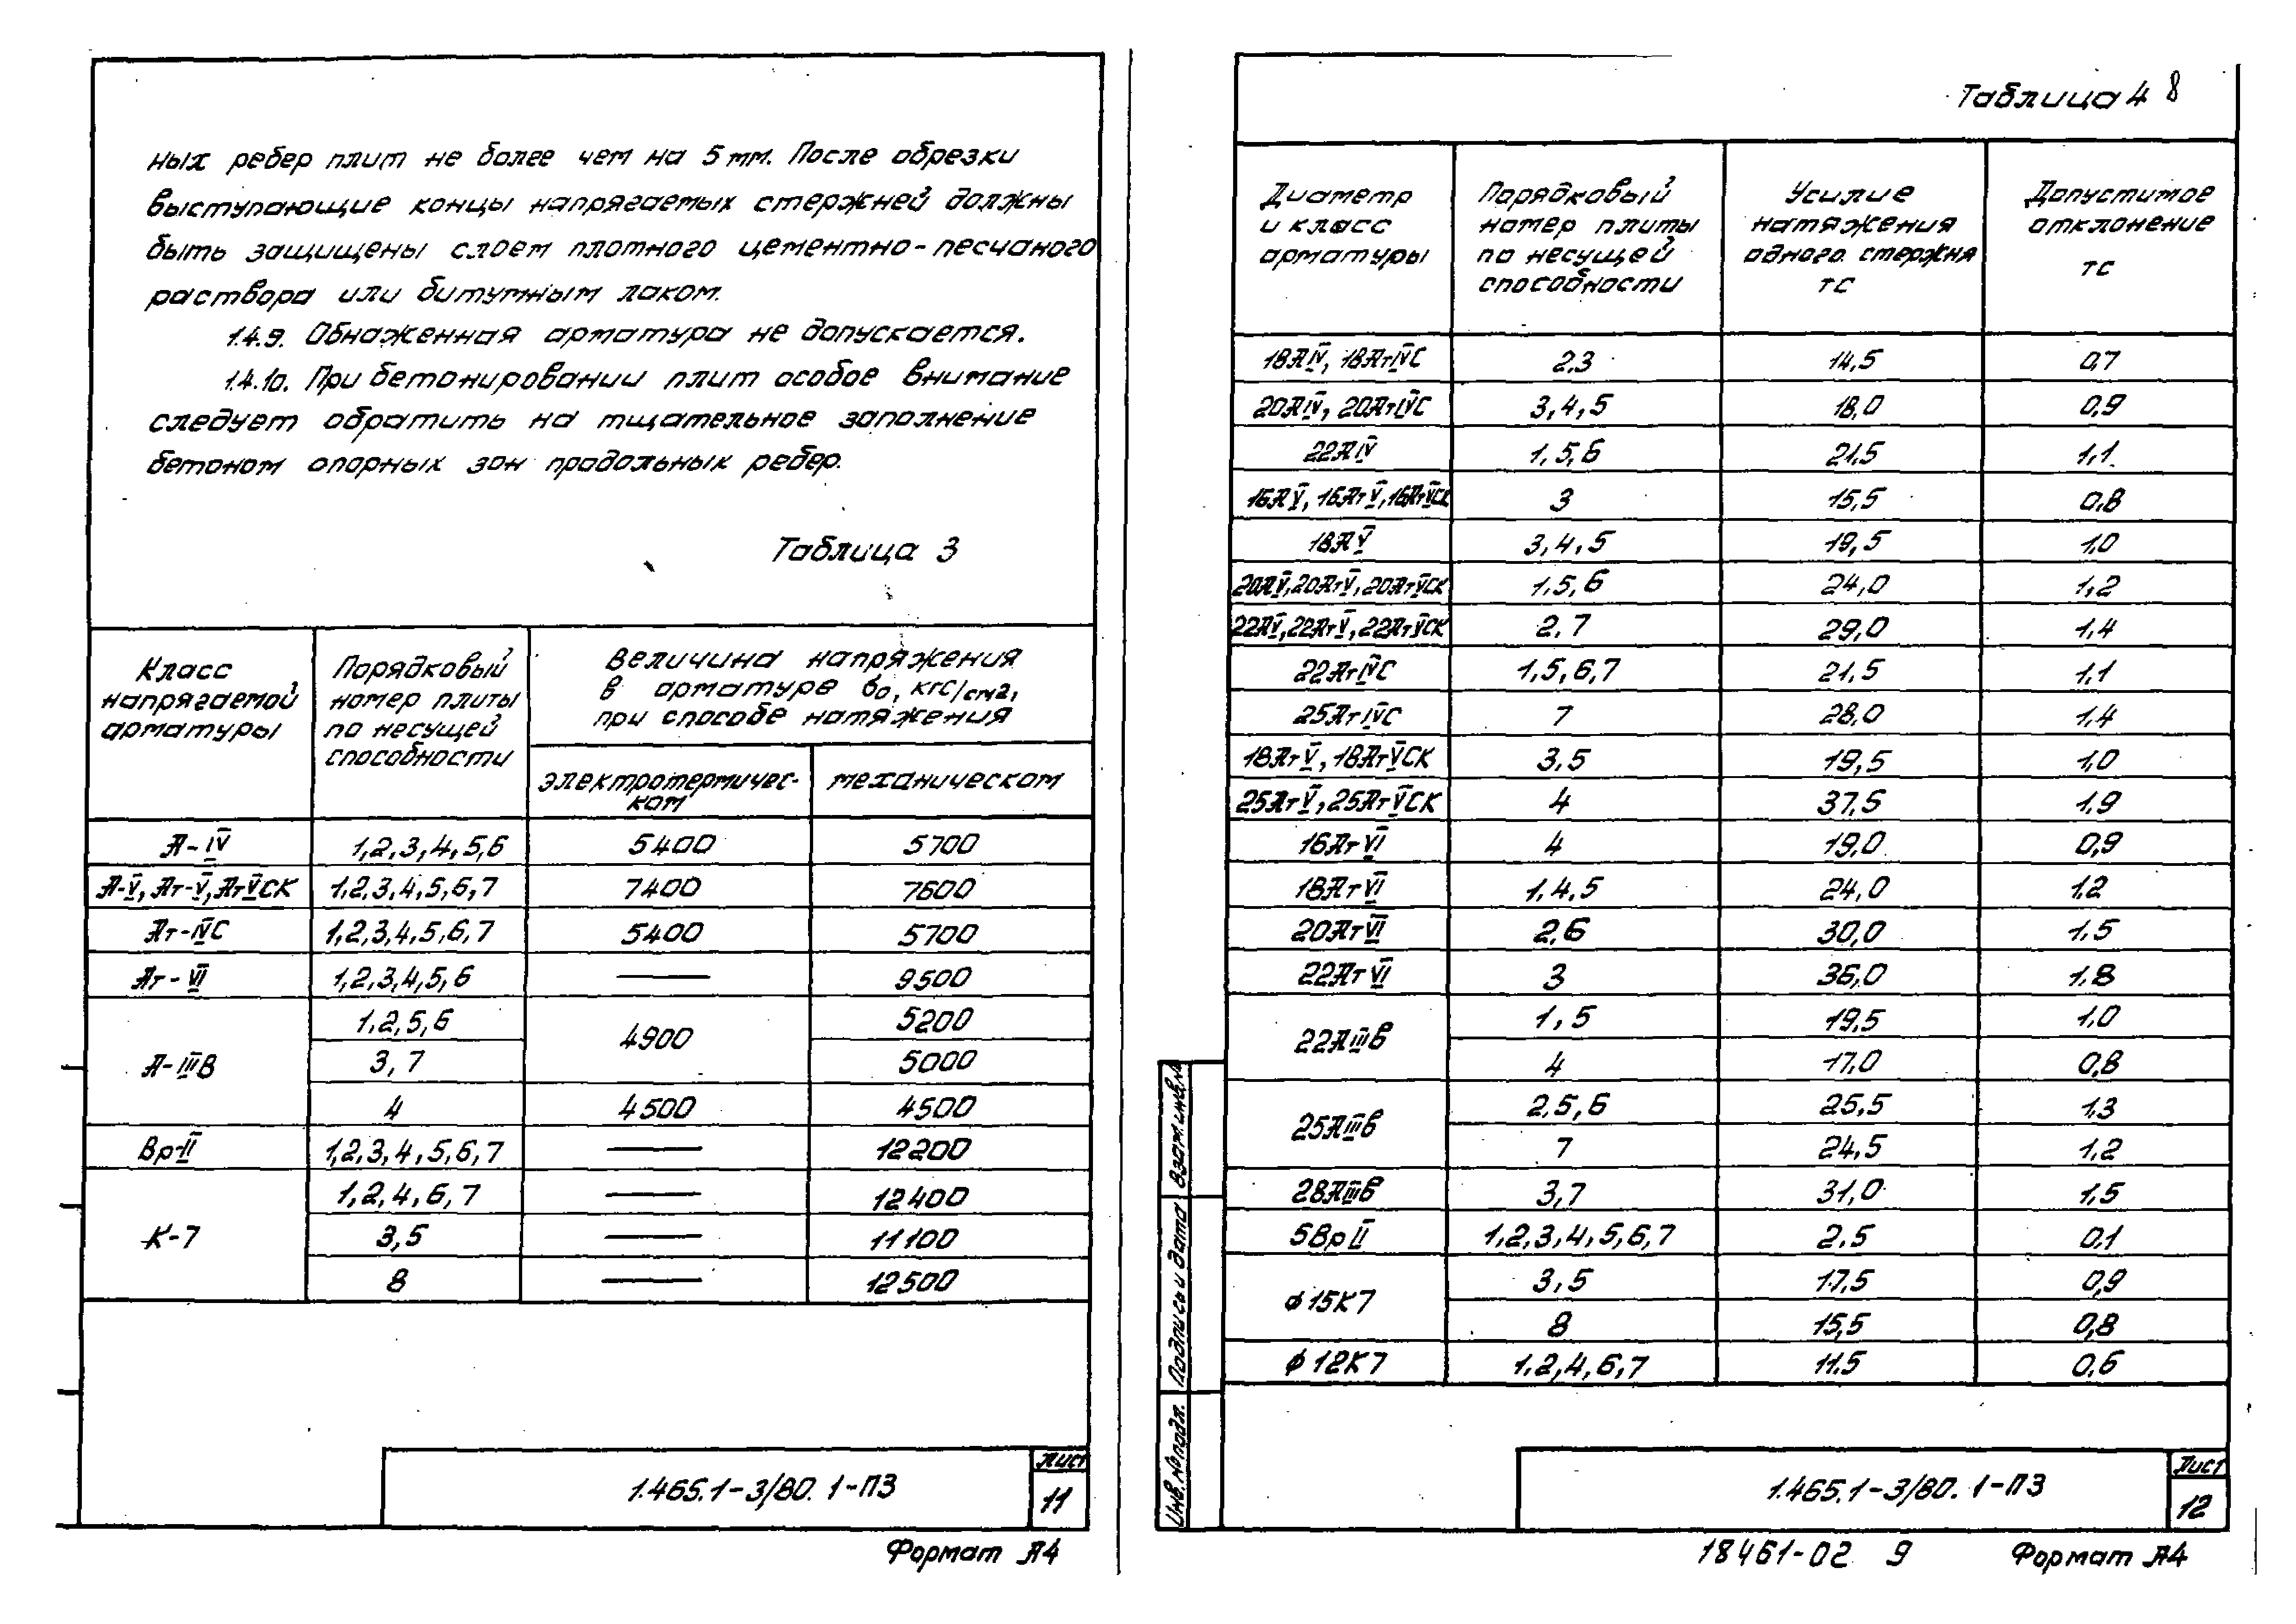 ных ребер плит не более чем на 5 мм. После обрезки
выступающие концы напрягаемых стержней должны
быть защищены слоем плотного цементно-песчаного
раствора или битумным лаком.
1.4.9. Обнаженная арматура не допускается.
1.4.10. При бетонировании плит особое внимание
следует обратить на тщательное заполнение
бетоном опорных зон продольных ребер.
Таблица 3
Класс напрягаемой арматуры
Порядковый номер плиты по несущей способности
Величина напряжения в арматуре σ0, кгс/см2, при способе натяжения
электротермическом
механическом
А-IV 1,2,3,4,5,6 5400 5700
А-V, Ат-V, АтVСК 1,2,3,4,5,6,7 7400 7600
Ат-IVС 1,2,3,4,5,6,7 5400 5700
Ат-VI 1,2,3,4,5,6 — 9500
А-IIIв 1,2,5,6 4900 5200
3,7 5000
4 4500 4500
Вр-II 1,2,3,4,5,6,7 — 12200
К-7 1,2,4,6,7 — 12400
3,5 — 11100
8 — 12500
1.465.1-3/80. 1-ПЗ
Лист
11
Формат А4
Таблица 4 8
Диаметр и класс арматуры
Порядковый номер плиты по несущей способности
Усилие натяжения одного стержня тс
Допустимое отклонение тс
18АIV, 18АтIVС 2,3 14,5 0,7
20АIV, 20АтIVС 3,4,5 18,0 0,9
22АIV 1,5,6 21,5 1,1
16АV, 16АтV, 16АтVСК 3 15,5 0,8
18АV 3,4,5 19,5 1,0
20АV, 20АтV, 20АтVСК 1,5,6 24,0 1,2
22АV, 22АтV, 22АтVСК 2,7 29,0 1,4
22АтIVС 1,5,6,7 21,5 1,1
25АтIVС 7 28,0 1,4
18АтV, 18АтVСК 3,5 19,5 1,0
25АтV, 25АтVСК 4 37,5 1,9
16АтVI 4 19,0 0,9
18АтVI 1,4,5 24,0 1,2
20АтVI 2,6 30,0 1,5
22АтVI 3 36,0 1,8
22АIIIв 1,5 19,5 1,0
4 17,0 0,8
25АIIIв 2,5,6 25,5 1,3
7 24,5 1,2
28АIIIв 3,7 31,0 1,5
5ВрII 1,2,3,4,5,6,7 2,5 0,1
ф15К7 3,5 17,5 0,9
8 15,5 0,8
ф12К7 1,2,4,6,7 11,5 0,6
Взам. инв. №
Подпись и дата
Инв. № подл.
1.465.1-3/80. 1-ПЗ
Лист
12
18461-02 9
Формат А4